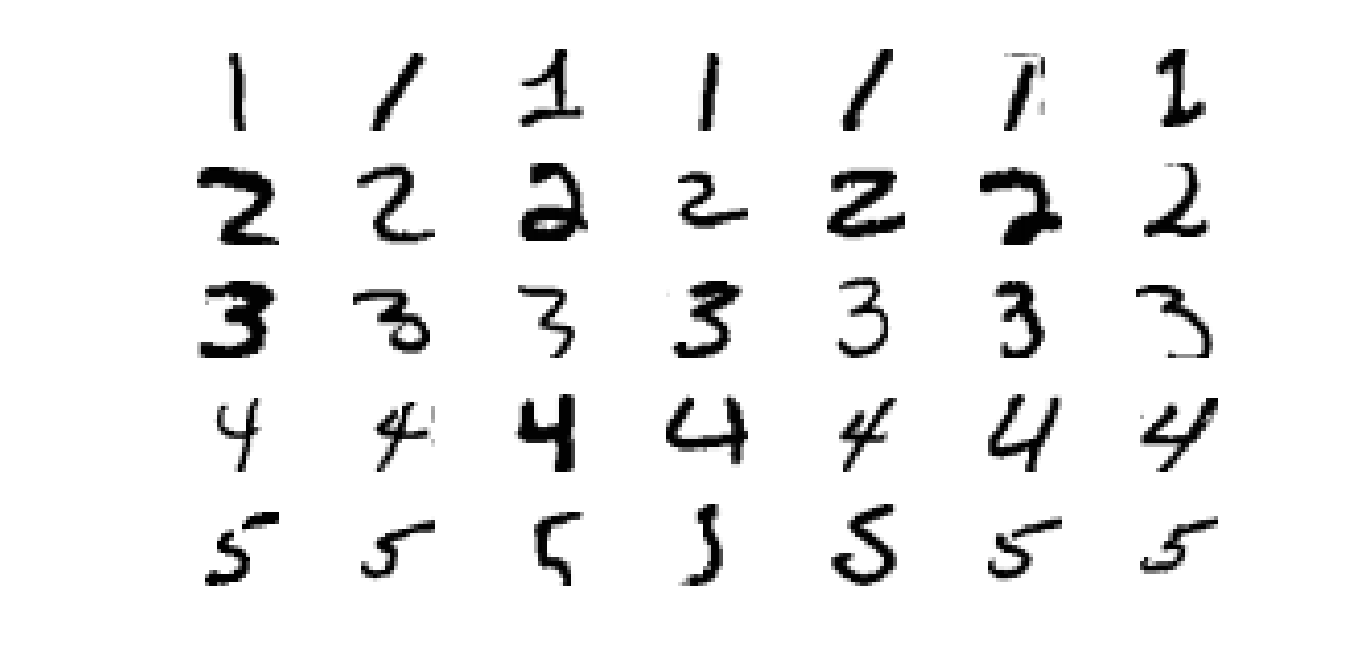 1 1 1 1 1 1 1
2 2 2 2 2 2 2
3 3 3 3 3 3 3
4 4 4 4 4 4 4
5 5 5 5 5 5 5